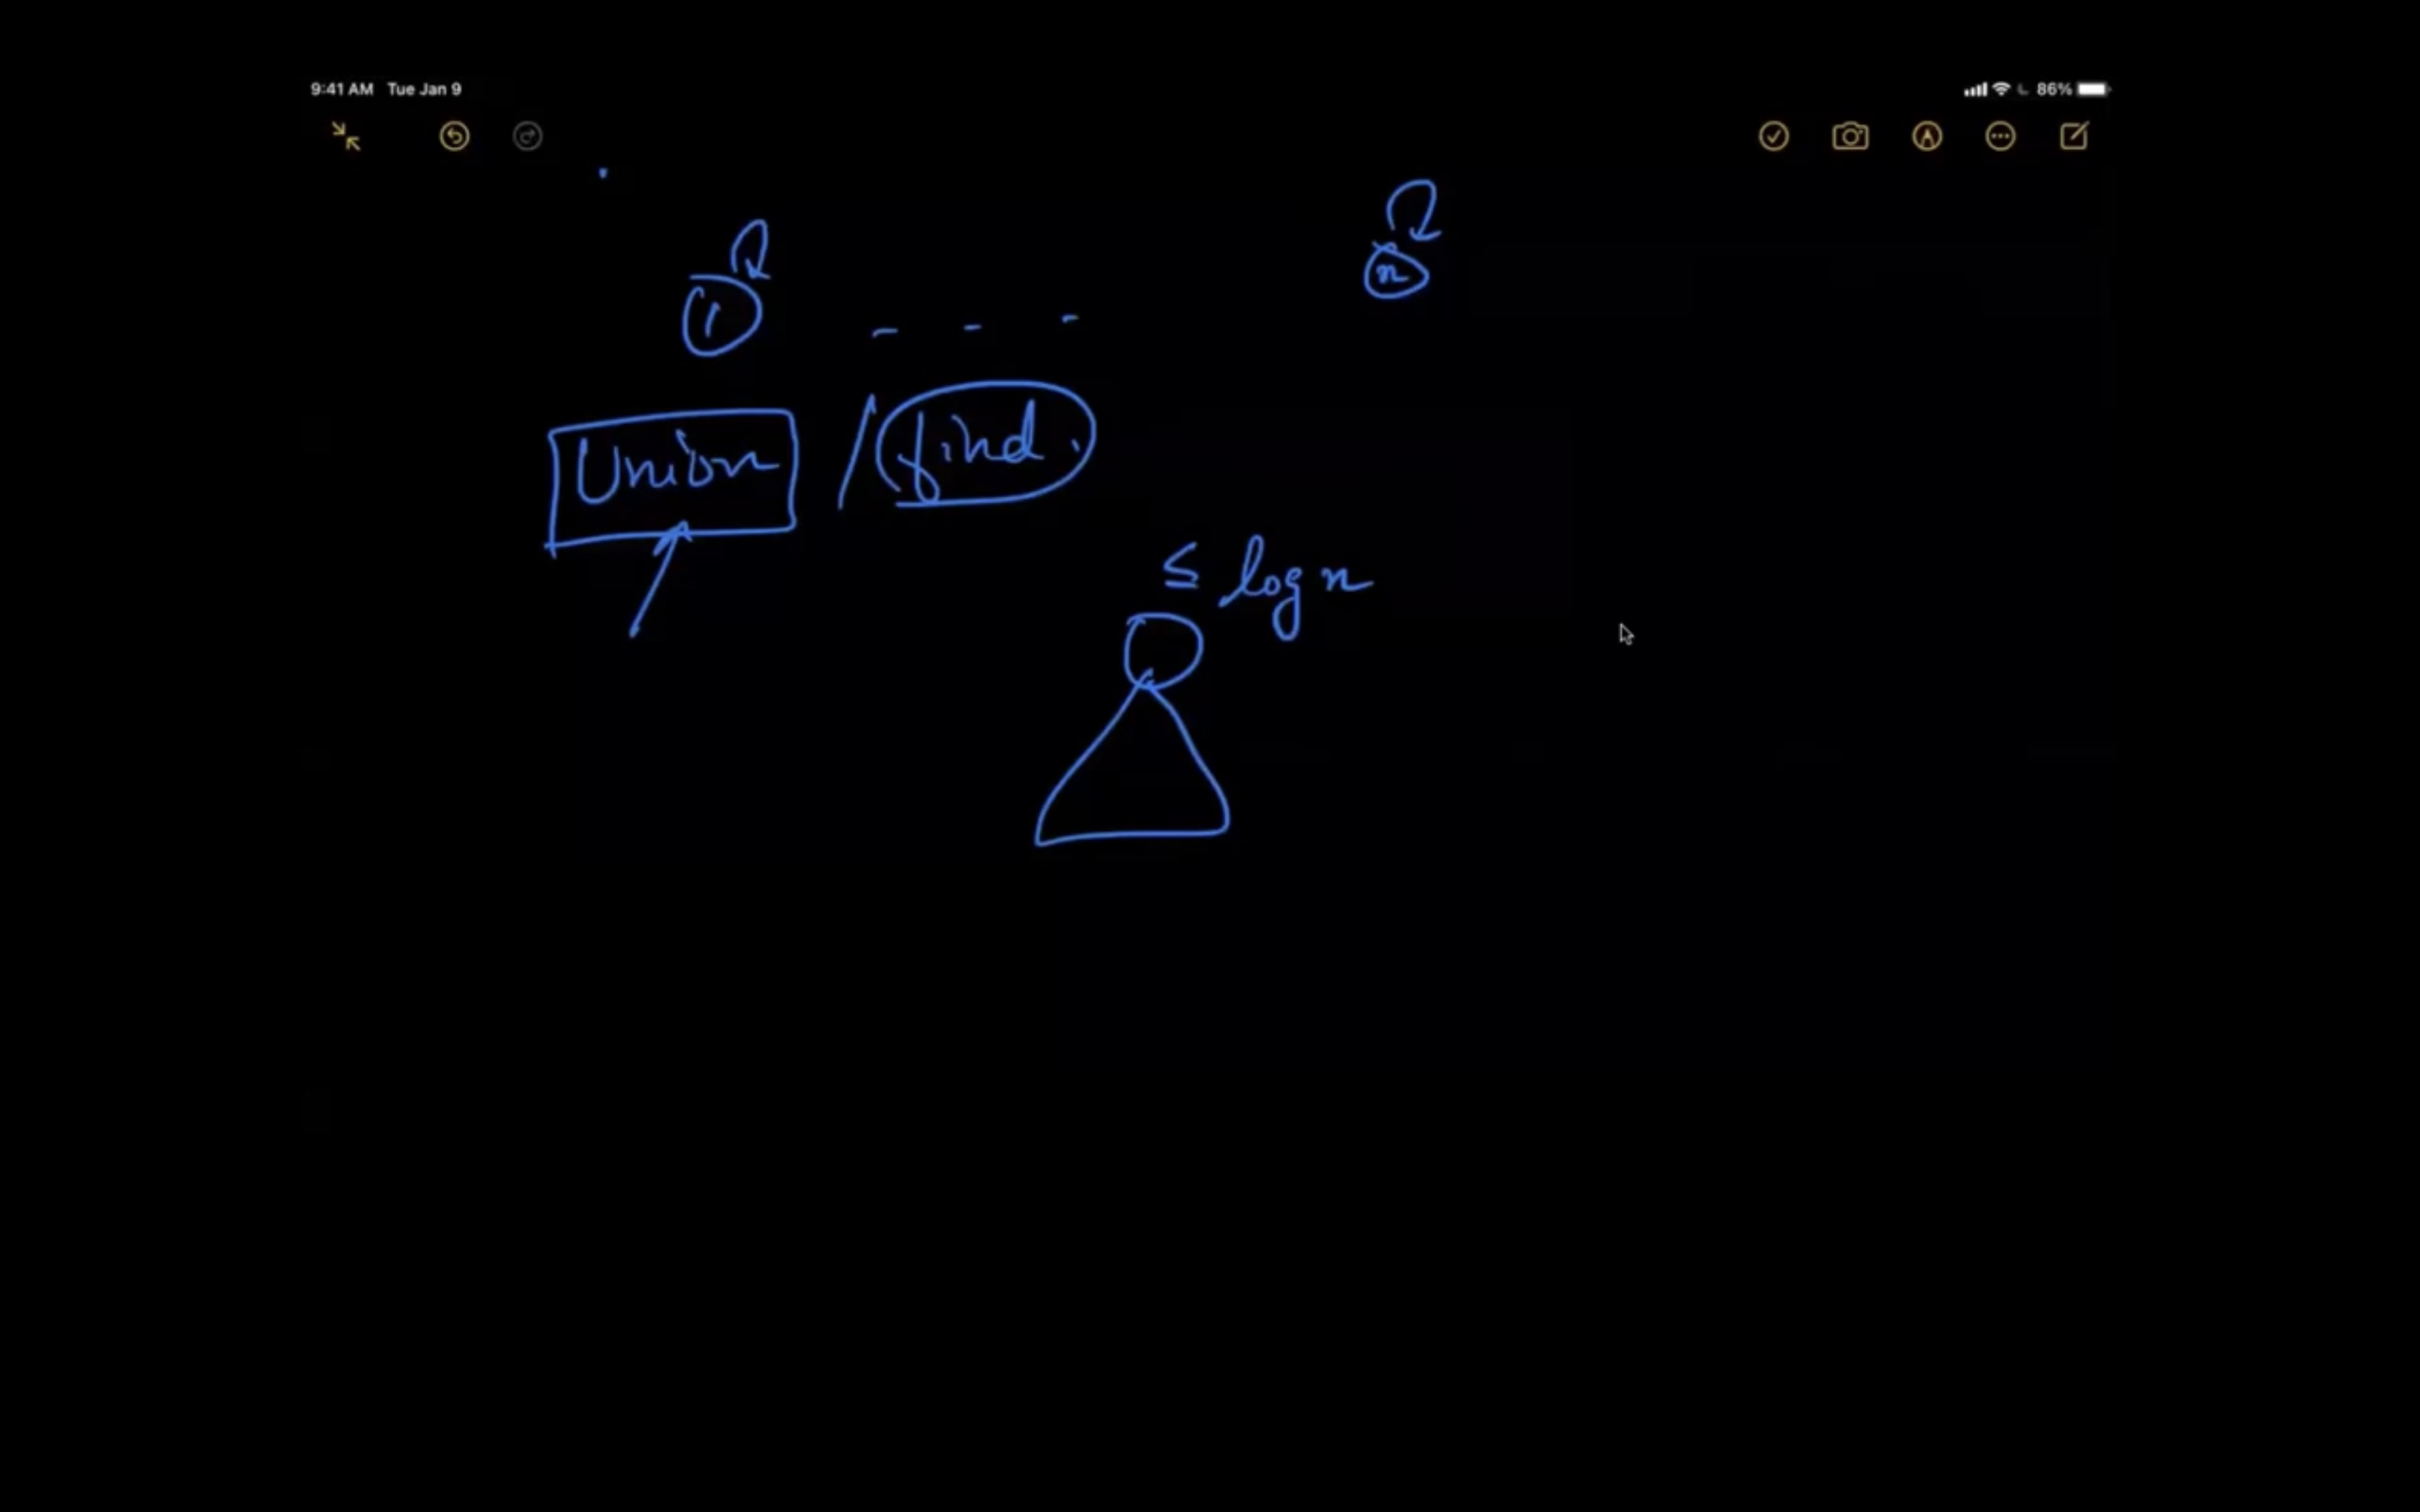 9:41 AM Tue Jan 9
86%
1 - - - n
Union / find.
≤ log n